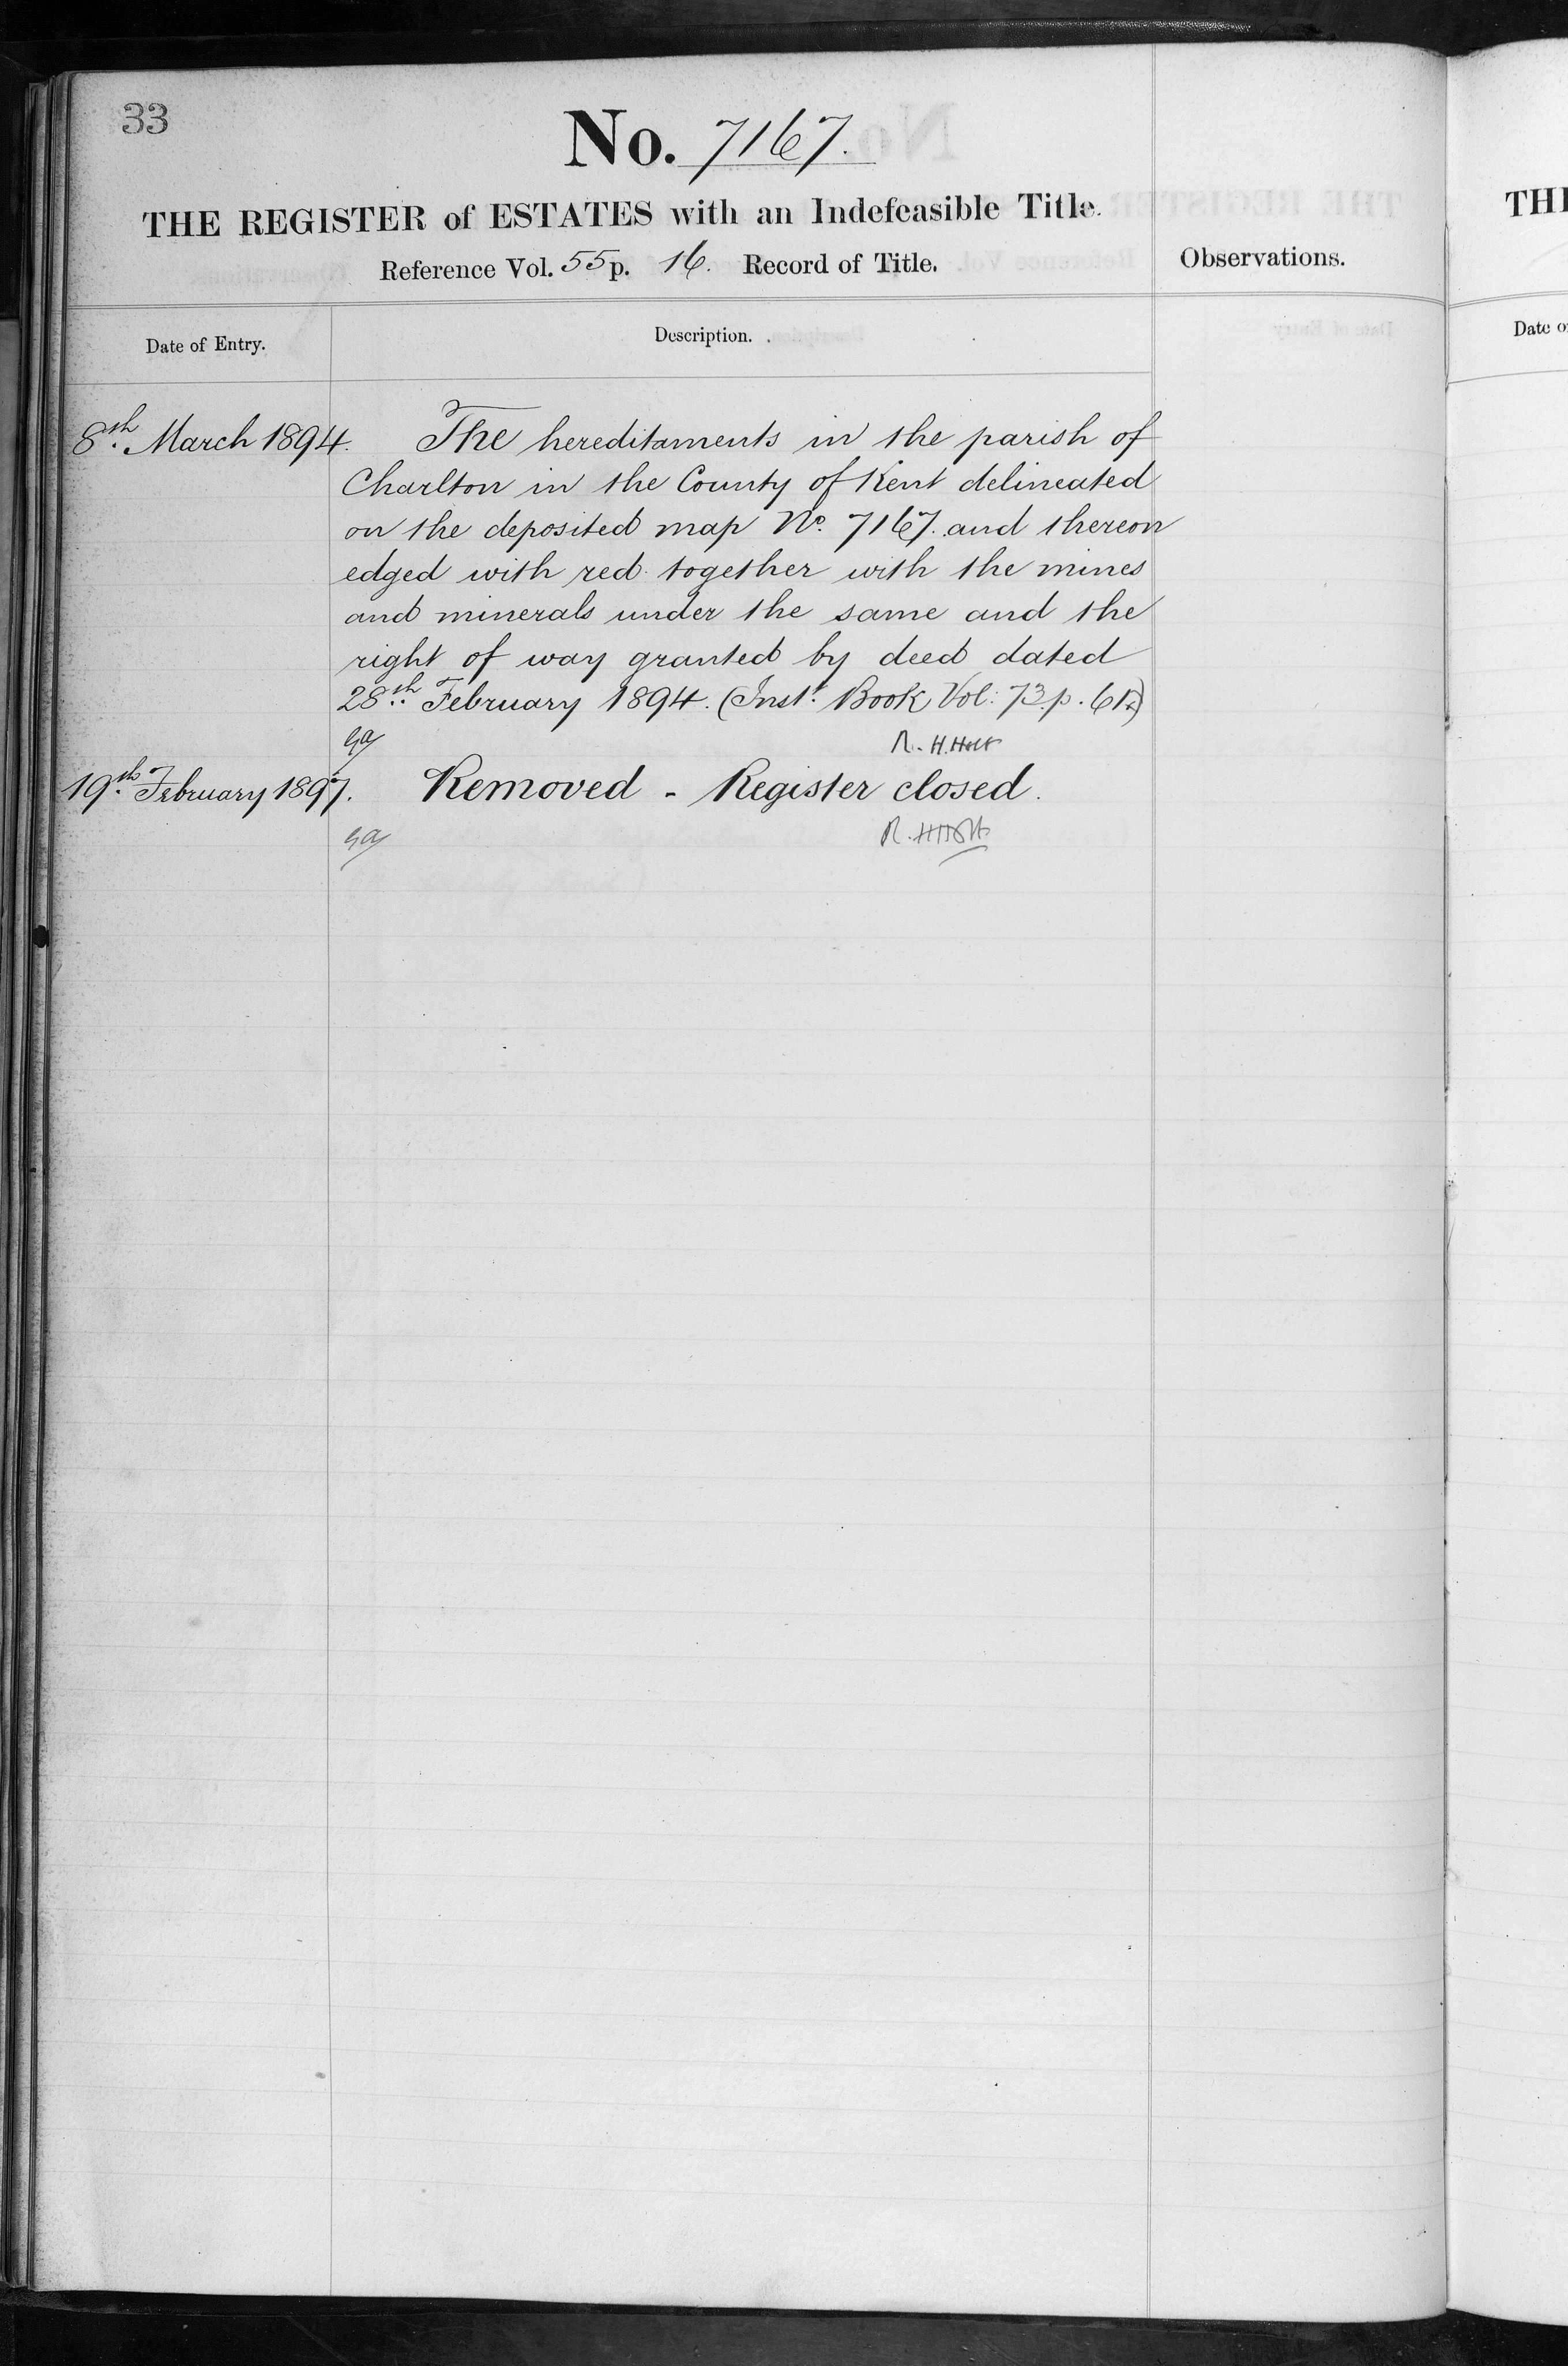 33
No. 7167.
THE REGISTER of ESTATES with an Indefeasible Title.
Reference Vol. 55 p. 16. Record of Title.
Observations.
Date of Entry.
Description.
8th. March 1894. The hereditaments in the parish of
Charlton in the County of Kent delineated
on the deposited map No. 7167. and thereon
edged with red together with the mines
and minerals under the same and the
right of way granted by deed dated
28th. February 1894. (Inst. Book Vol: 73. p. 61.)
R. H. Holt
19th. February 1897. Removed - Register closed.
R. H Holt
THE
Date o